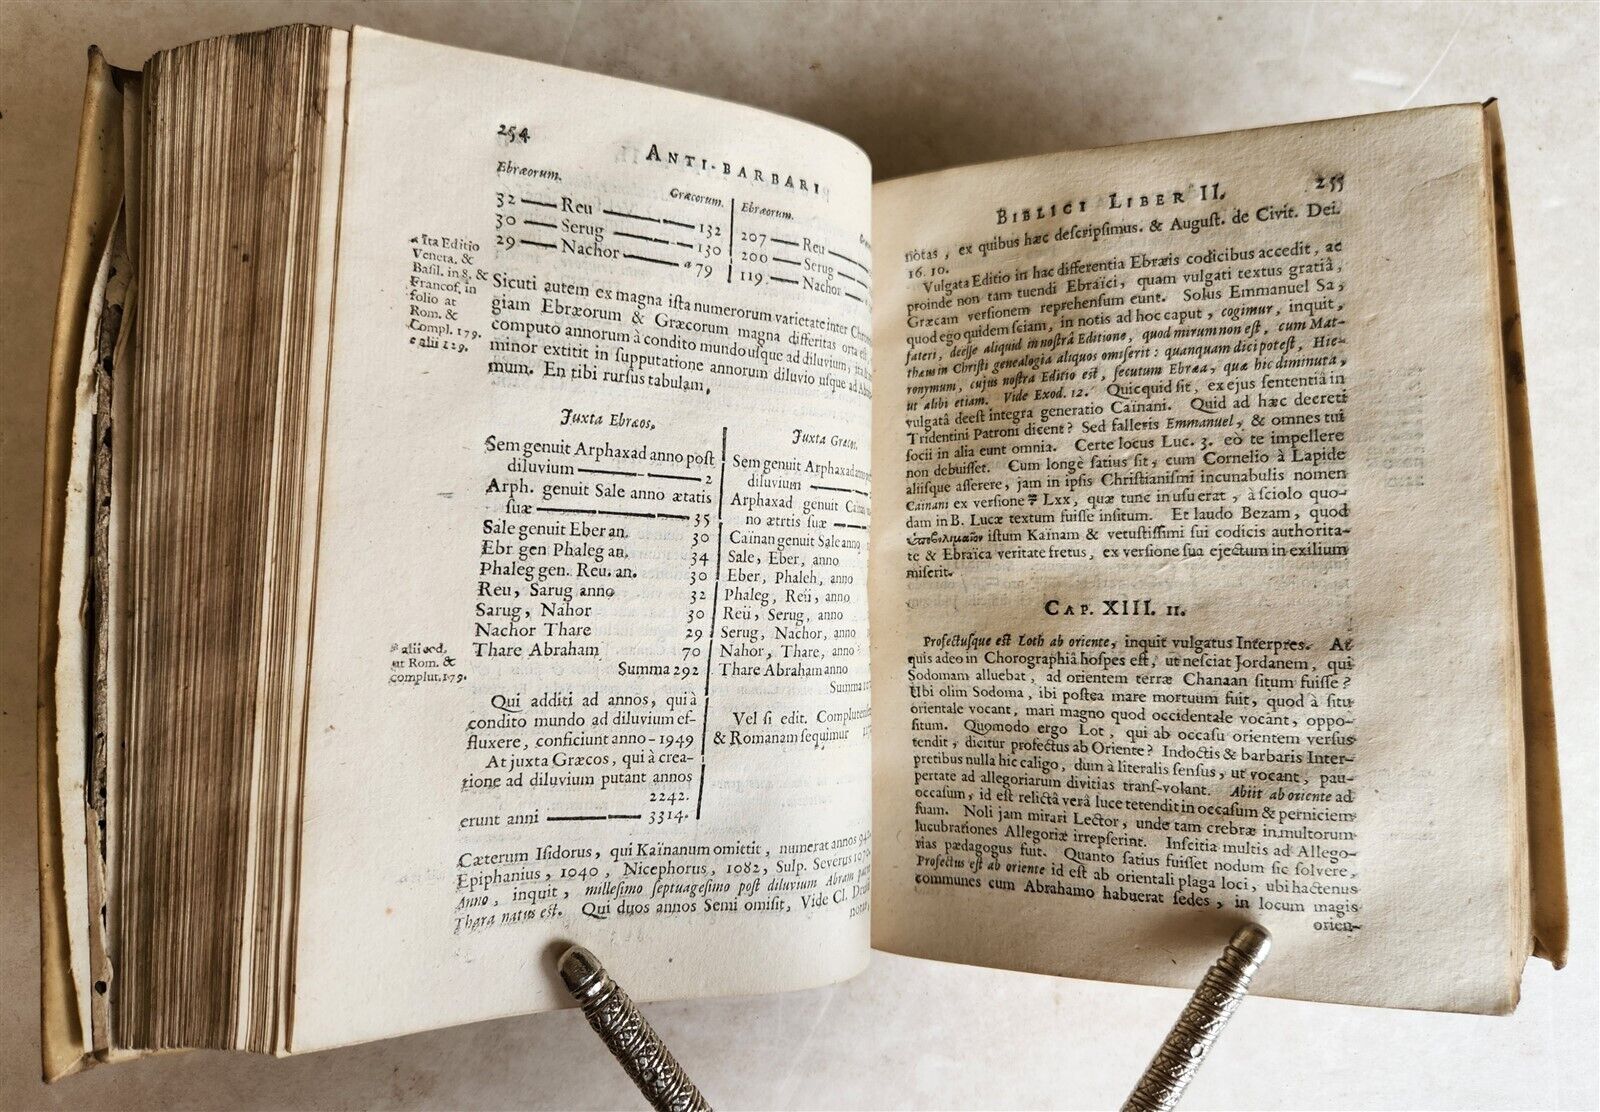 254
ANTI-BARBARI
Ebræorum.
Græcorum.
32 — Reu — 132
30 — Serug — 130
29 — Nachor — a 79
Ebræorum.
207 — Reu
200 — Serug
119. — Nachor
a Ita Editio
Veneta. &
Basil. in 8. &
Francof. in
folio at
Rom. &
Compl. 179.
alii 129.
Sicuti autem ex magna ista numerorum varietate inter
giam Ebræorum & Græcorum magna differitas orta
computo annorum à condito mundo usque ad diluvium,
minor extitit in supputatione annorum diluvio usque ad
mum. En tibi rursus tabulam.
Juxta Ebræos.
Sem genuit Arphaxad anno post
diluvium — 2
Arph. genuit Sale anno ætatis
suæ — 35
Sale genuit Eber an. 30
Ebr gen. Phaleg an. 34
Phaleg gen. Reu. an. 30
Reu, Sarug anno 32
Sarug, Nahor 30
Nachor Thare 29
Thare Abraham 70
Summa 292
Qui additi ad annos, qui à
condito mundo ad diluvium ef-
fluxere, conficiunt anno - 1949
At juxta Græcos, qui à crea-
tione ad diluvium putant annos
2242.
erunt anni — 3314.
alii eed,
ut Rom. &
complut. 179.
Juxta Græcos.
Sem genuit Arphaxad anno
diluvium —
Arphaxad genuit
no ætrtis suæ —
Caïnan genuit Sale anno
Sale, Eber, anno
Eber, Phaleh, anno
Phaleg, Reü, anno
Reü, Serug, anno
Serug, Nachor, anno
Nahor, Thare, anno
Thare Abraham anno
Summa
Vel si edit.
& Romanam sequimur
Cæterum Isidorus, qui Kaïnanum omittit, numerat annos
Epiphanius, 1040, Nicephorus, 1082, Sulp. Severus
Anno, inquit, millesimo septuagesimo post diluvium Abram
Thara natus est. Qui duos annos Semi omisit, Vide Cl.
BIBLICI LIBER II. 255
notas, ex quibus hæc descripsimus. & August. de Civit. Dei.
16. 10.
Vulgata Editio in hac differentia Ebræis codicibus accedit, ac
proinde non tam tuendi Ebraïci, quam vulgati textus gratiâ,
Græcam versionem reprehensum eunt. Solus Emmanuel Sa,
quod ego quidem sciam, in notis ad hoc caput, cogimur, inquit,
fateri, deesse aliquid in nostrâ Editione, quod mirum non est, cum Mat-
thæus in Christi genealogia aliquos omiserit: quanquam dici potest, Hie-
ronymum, cujus nostra Editio est, secutum Ebræa, quæ hic diminuta,
ut alibi etiam. Vide Exod. 12. Quicquid sit, ex ejus sententiâ in
vulgatâ deest integra generatio Caïnani. Quid ad hæc decreti
Tridentini Patroni dicent? Sed falleris Emmanuel, & omnes tui
socii in alia eunt omnia. Certe locus Luc. 3. eò te impellere
non debuisset. Cum longè satius sit, cum Cornelio à Lapide
aliisque asserere, jam in ipsis Christianismi incunabulis nomen
Cainani ex versione LXX, quæ tunc in usu erat, à sciolo quo-
dam in B. Lucæ textum fuisse insitum. Et laudo Bezam, quod
istum Kaïnam & vetustissimi sui codicis authorita-
te & Ebraïca veritate fretus, ex versione sua ejectum in exilium
miserit.
CAP. XIII. 11.
Profectusque est Loth ab oriente, inquit vulgatus Interpres. At
quis adeo in Chorographiâ hospes est, ut nesciat Jordanem, qui
Sodomam alluebat, ad orientem terræ Chanaan situm fuisse?
Ubi olim Sodoma, ibi postea mare mortuum fuit, quod à situ
orientale vocant, mari magno quod occidentale vocant, oppo-
situm. Quomodo ergo Lot, qui ab occasu orientem versus
tendit, dicitur profectus ab Oriente? Indoctis & barbaris Inter-
pretibus nulla hic caligo, dum à literalis sensus, ut vocant, pau-
pertate ad allegoriarum divitias trans-volant. Abiit ab oriente ad
occasum, id est relictâ verâ luce tetendit in occasum & perniciem
suam. Noli jam mirari Lector, unde tam crebræ in multorum
lucubrationes Allegoriæ irrepserint. Inscitia multis ad Allego-
rias pædagogus fuit. Quanto satius fuisset nodum sic solvere,
Profectus est ab oriente id est ab orientali plaga loci, ubi hactenus
communes cum Abrahamo habuerat sedes, in locum magis
orien-